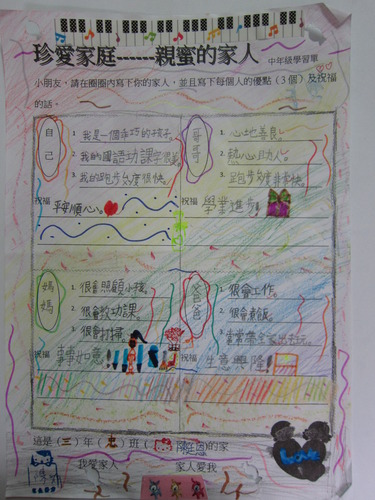 珍愛家庭------親蜜的家人 中年級學習單
小朋友，請在圈圈內寫下你的家人，並且寫下每個人的優點（3個）及祝福
的話。
自己
1 我是一個手巧的孩子。
2 我的國語功課字很美
3 我的跑步速度很快。
祝福 平安順心。
哥哥
1 心地善良。
2 熱心助人。
3 跑步速度非常快。
祝福 學業進步!
媽媽
1. 很會照顧小孩。
2. 很會教功課。
3. 很會打掃。
祝福 事事如意!
爸爸
1. 很會工作。
2. 很會煮飯。
3. 常常帶全家出去玩。
祝福 生意興隆!
這是（三）年（忠）班（陳廷恩)的家
我愛家人 家人愛我
Love